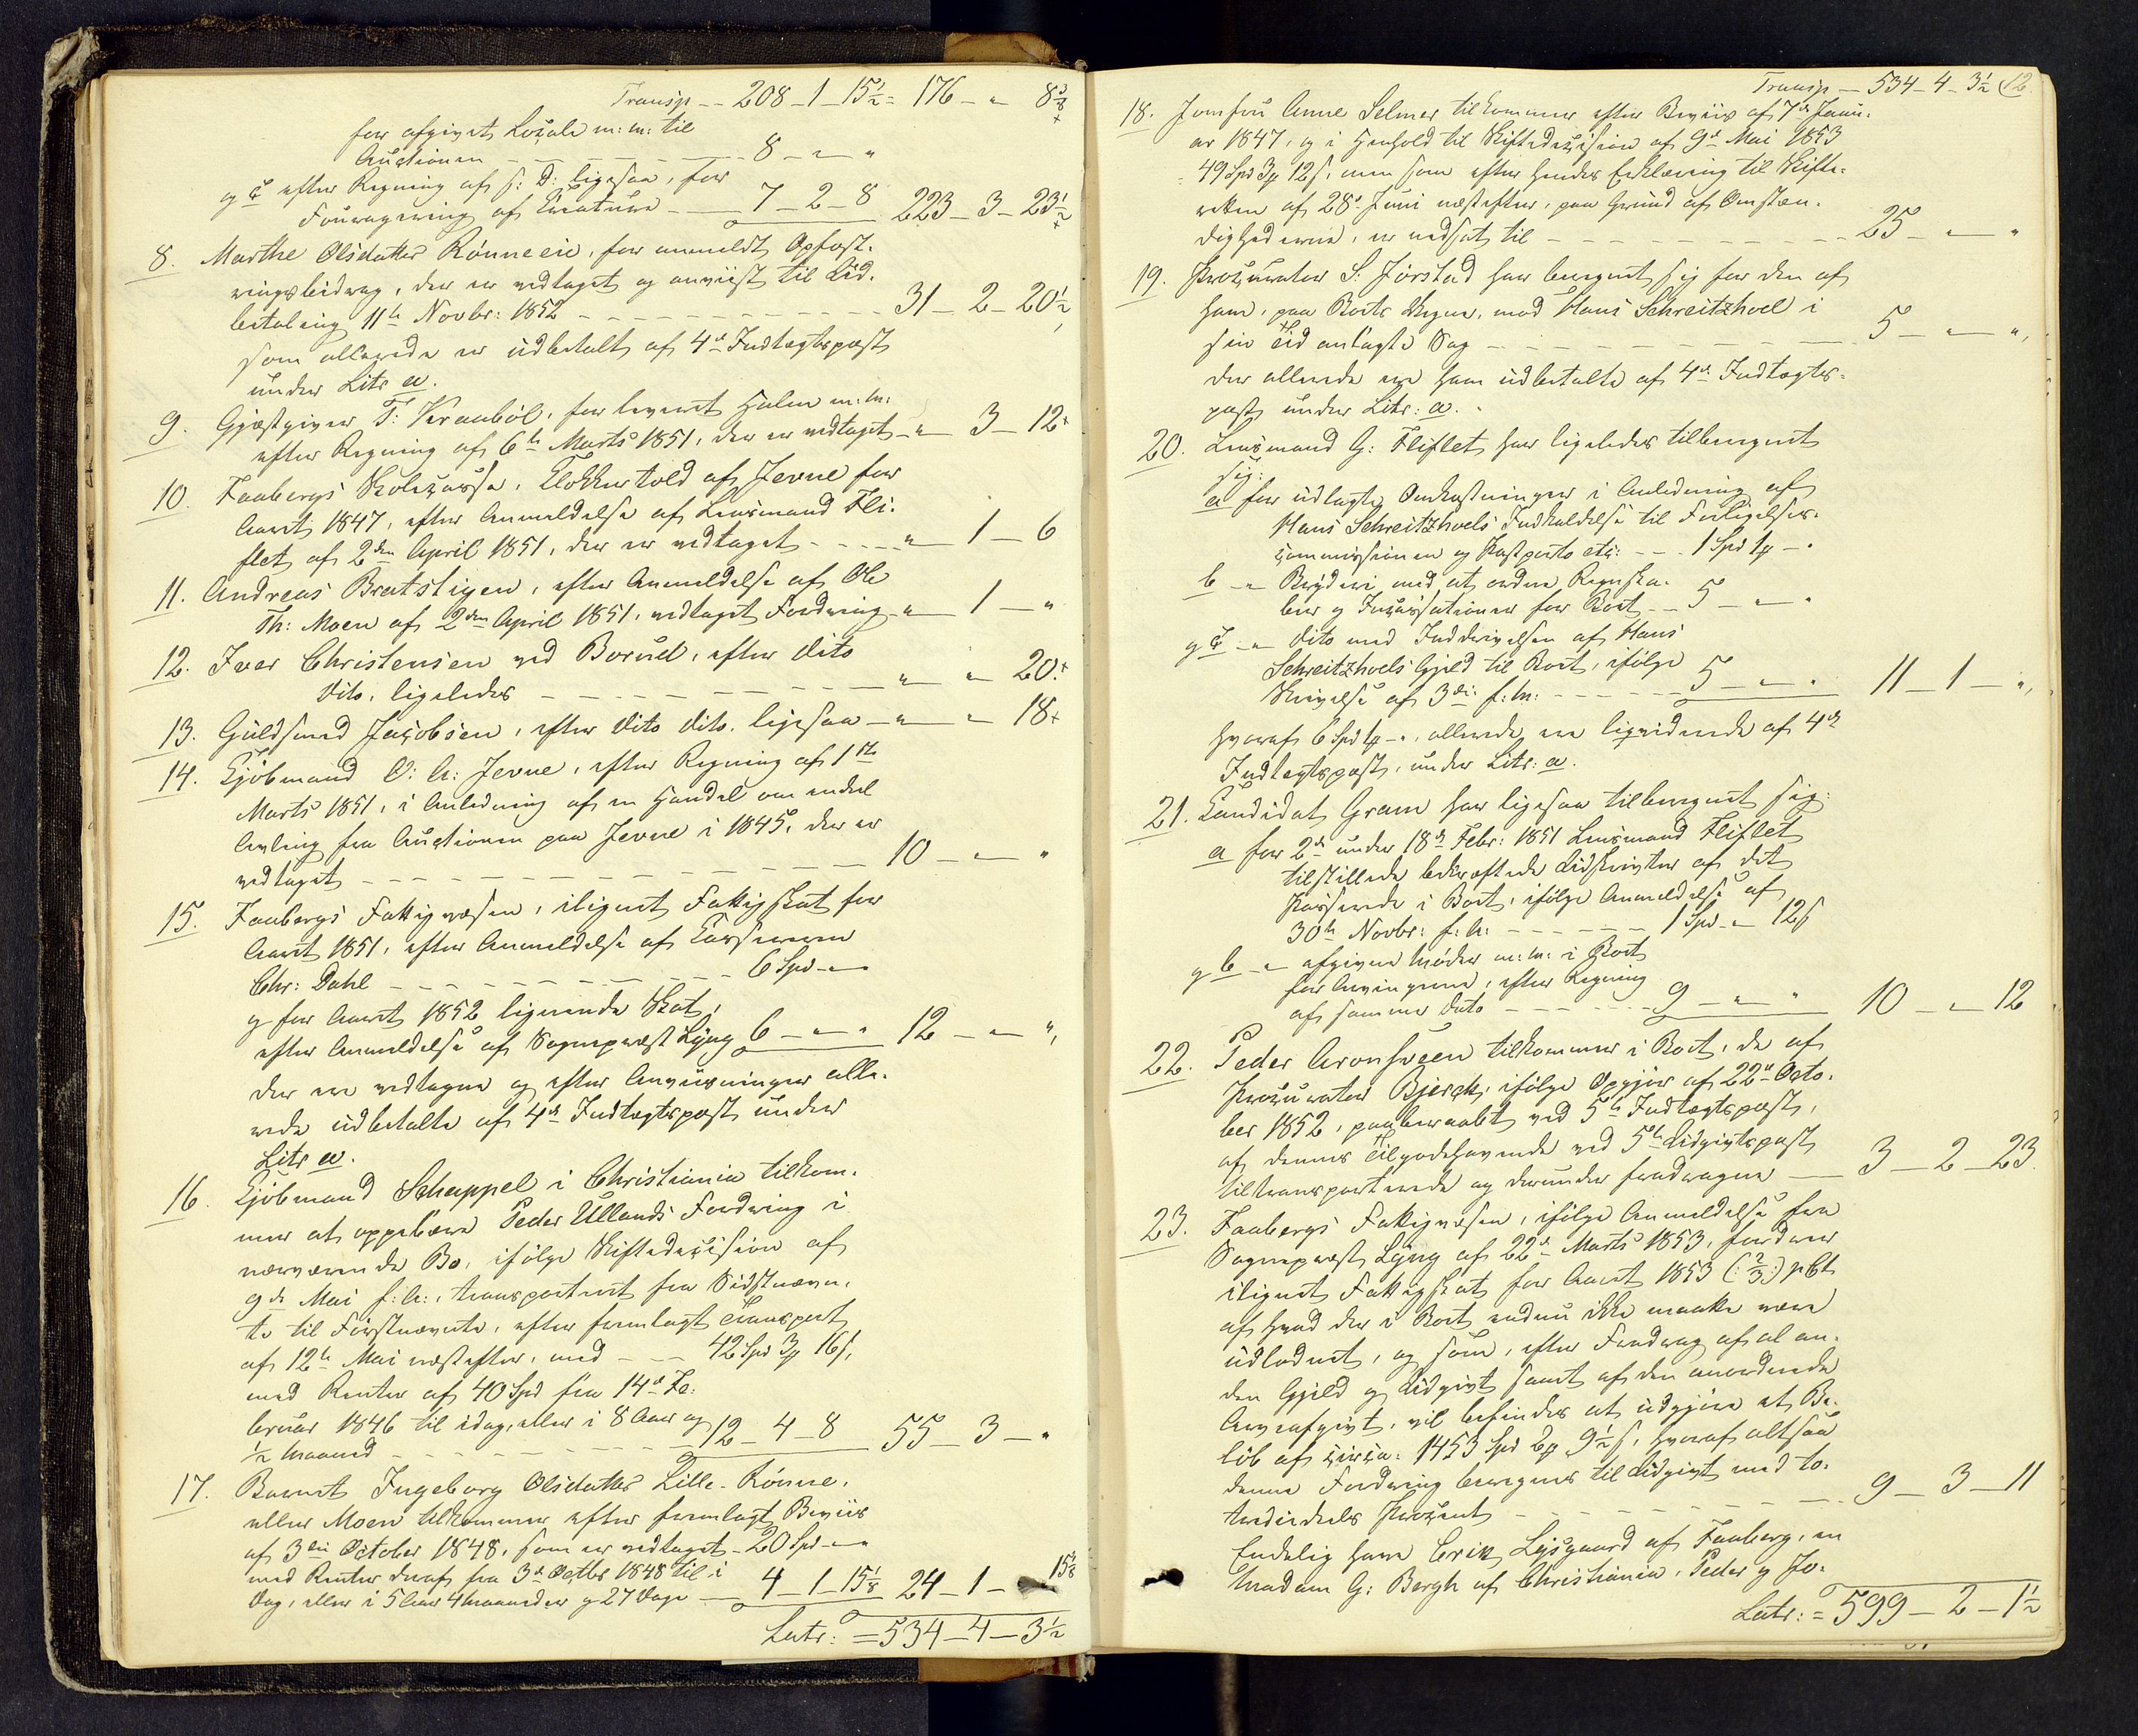 Transp -- 208 - 1 - 15½ = 176 - " 8⅜
for afgivet Locale m: m: til
Auctionen - - - 8 - " "
og c efter Regning af s: D: ligesaa, for
Fouragering af Creature - - 7 - 2 - 8 223 - 3 - 23½
8. Marthe Olsdatter Rønneeie, for anmeldt Opfost-
ringsbidrag, der er vedtaget og anviist til Ud-
betaling 11te Novbr: 1852 - - - 31 - 2 - 20½,
som allerede er udbetalt af 4de Indtægtspost
under Litr a.
9. Gjæstgiver T: Kranbøl, for leveret Halm m: m:
efter Regning af 6te Marts 1851, der er vedtaget - " 3 - 12
10. Faabergs Skolecasse, Klokkertold af Jevne for
Aaret 1847, efter Anmeldelse af Lensmand Fli-
flet af 2den April 1851, der er vedtaget - - - " 1 - 6
11. Andreas Bratstigen, efter Anmeldelse af Ole
Th: Moen af 2den April 1851, vedtaget Fordring - " 1 - "
12. Iver Christensen ved Borud, efter dito
dito, ligeledes - - - " " 20
13. Guldsmed Jacobsen, efter dito dito, ligesaa - " " 18
14. Kjøbmand O: A: Jevne, efter Regning af 1ste
Marts 1851, i Anledning af en Handel om endeel
Avling fra Auctionen paa Jevne i 1845, der er
vedtaget - - - 10 - " "
15. Faabergs Fattigvæsen, ilignet Fattigskat for
Aaret 1851, efter Anmeldelse af Casserer
Chr: Dahl - - - 6 Spd - "
og for Aaret 1852 lignende Skat,
efter Anmeldelse af Sognepræst Lyng 6 - " " 12 - " ",
der ere vedtagne og efter Anviisninger alle-
rede udbetalte af 4de Indtægtspost under
Litr a.
16. Kjøbmand Schappel i Christiania tilkom-
mer at oppebære Peder Ullands Fordring i
nærværende Bo, ifølge Skiftedecision af
9de Mai f: A:, transporteret fra Sidstnævn-
te til Førstnævnte, efter fremlagt Transport
af 12te Mai næstefter, med - - 42 Spd 3 ₰ 16 s,
med Renter af 40 Spd fra 14de Fe-
bruar 1846 til idag, eller i 8 Aar og
½ Maaned - - - 12 - 4 - 8 55 - 3 - "
17. Barnet Ingeborg Olsdatter Lille-Rønne,
eller Moen tilkommer efter fremlagt Beviis
af 3die October 1848, som er vedtaget - 20 Spd - "
med Renter deraf fra 3de Octbr 1848 til i
Dag, eller i 5 Aar 4 Maaneder og 27 Dage - - 4 - 1 - 15⅛ 24 - 1 - 15⅛
Latr: = 534 - 4 - 3½
Transp - 534 - 4 - 3½ 12.
18. Jomfru Anne Selmer tilkommer efter Beviis af 7de Janu-
ar 1847, og i Henhold til Skiftedecision af 9de Mai 1853
49 Spd 3 ₰ 12 s, men som efter hendes Erklæring til Skifte-
retten af 28de Juni næstefter, paa Grund af Omstæn-
dighederne, er nedsat til - - - 25 - " "
19. Procurator S. Jørstad har beregnet sig for den af
ham, paa Boets Vegne, mod Hans Schreitzhoel i
sin Tid anlagte Sag - - - 5 - " ",
der allerede ere ham udbetalte af 4de Indtægts-
post under Litr: a.
20. Lensmand G: Fliflet har ligeledes tilberegnet
sig:
a for udlagte Omkostninger i Anledning af
Hans Schreitzhoels Indkaldelse til Forligelses-
commissionen og Postporto etc: - - 1 Spd 1 ₰ - "
b - " Bryderi med at ordne Regnska-
ber og Incassationer for Boet - - 5 - " "
og c - " dito med Inddrivelsen af Hans
Schreitzhoels Gjeld til Boet, ifølge
Skrivelse af 3die f: M: - - - 5 - " " 11 - 1 - ",
hvoraf 6 Spd 1 ₰ - ", allerede ere liqviderede af 4de
Indtægtspost, under Litr: a.
21. Candidat Gram har ligesaa tilberegnet sig:
a for 2de under 18de Febr: 1851 Lensmand Fliflet
tilstillede bekræftede Udskrivter af det
Passerede i Boet, ifølge Anmeldelse af
30te Novbr: f: A: - - - 1 Spd - " 12 s
og b - " afgivne Møder m: m: i Boet
for Arvingerne, efter Regning
af samme Dato - - - 9 - " " 10 - " 12
22. Peder Aronsveen tilkommer i Boet, de af
Procurator Bjerck, ifølge Opgjør af 22de Octo-
ber 1852, paaberaabt ved 5te Indtægtspost,
af dennes Tilgodehavende ved 5te Udgivtspost
tiltransporterede og derunder fradragne - - 3 - 2 - 23.
23. Faabergs Fattigvæsen, ifølge Anmeldelse fra
Sognepræst Lyng af 22de Marts 1853, fordrer
ilignet Fattigskat for Aaret 1853 (: ⅔ :) pCt
af hvad der i Boet endnu ikke maatte være
udloddet, og som, efter Fradrag af al an-
den Gjeld og Udgivt samt af den anordnede
Arveafgivt, vil befindes at udgjøre et Be-
løb af circa: 1453 Spd 2 ₰ 9½ s, hvoraf altsaa
denne Fordring beregnes til Udgivt med to-
tredjedeels Procent - - - 9 - 3 - 11
Endelig have Erik Lysgaard af Faaberg, en
Madam G: Bergh af Christiania, Peder og Jo-
Latr: = 599 - 2 - 1½